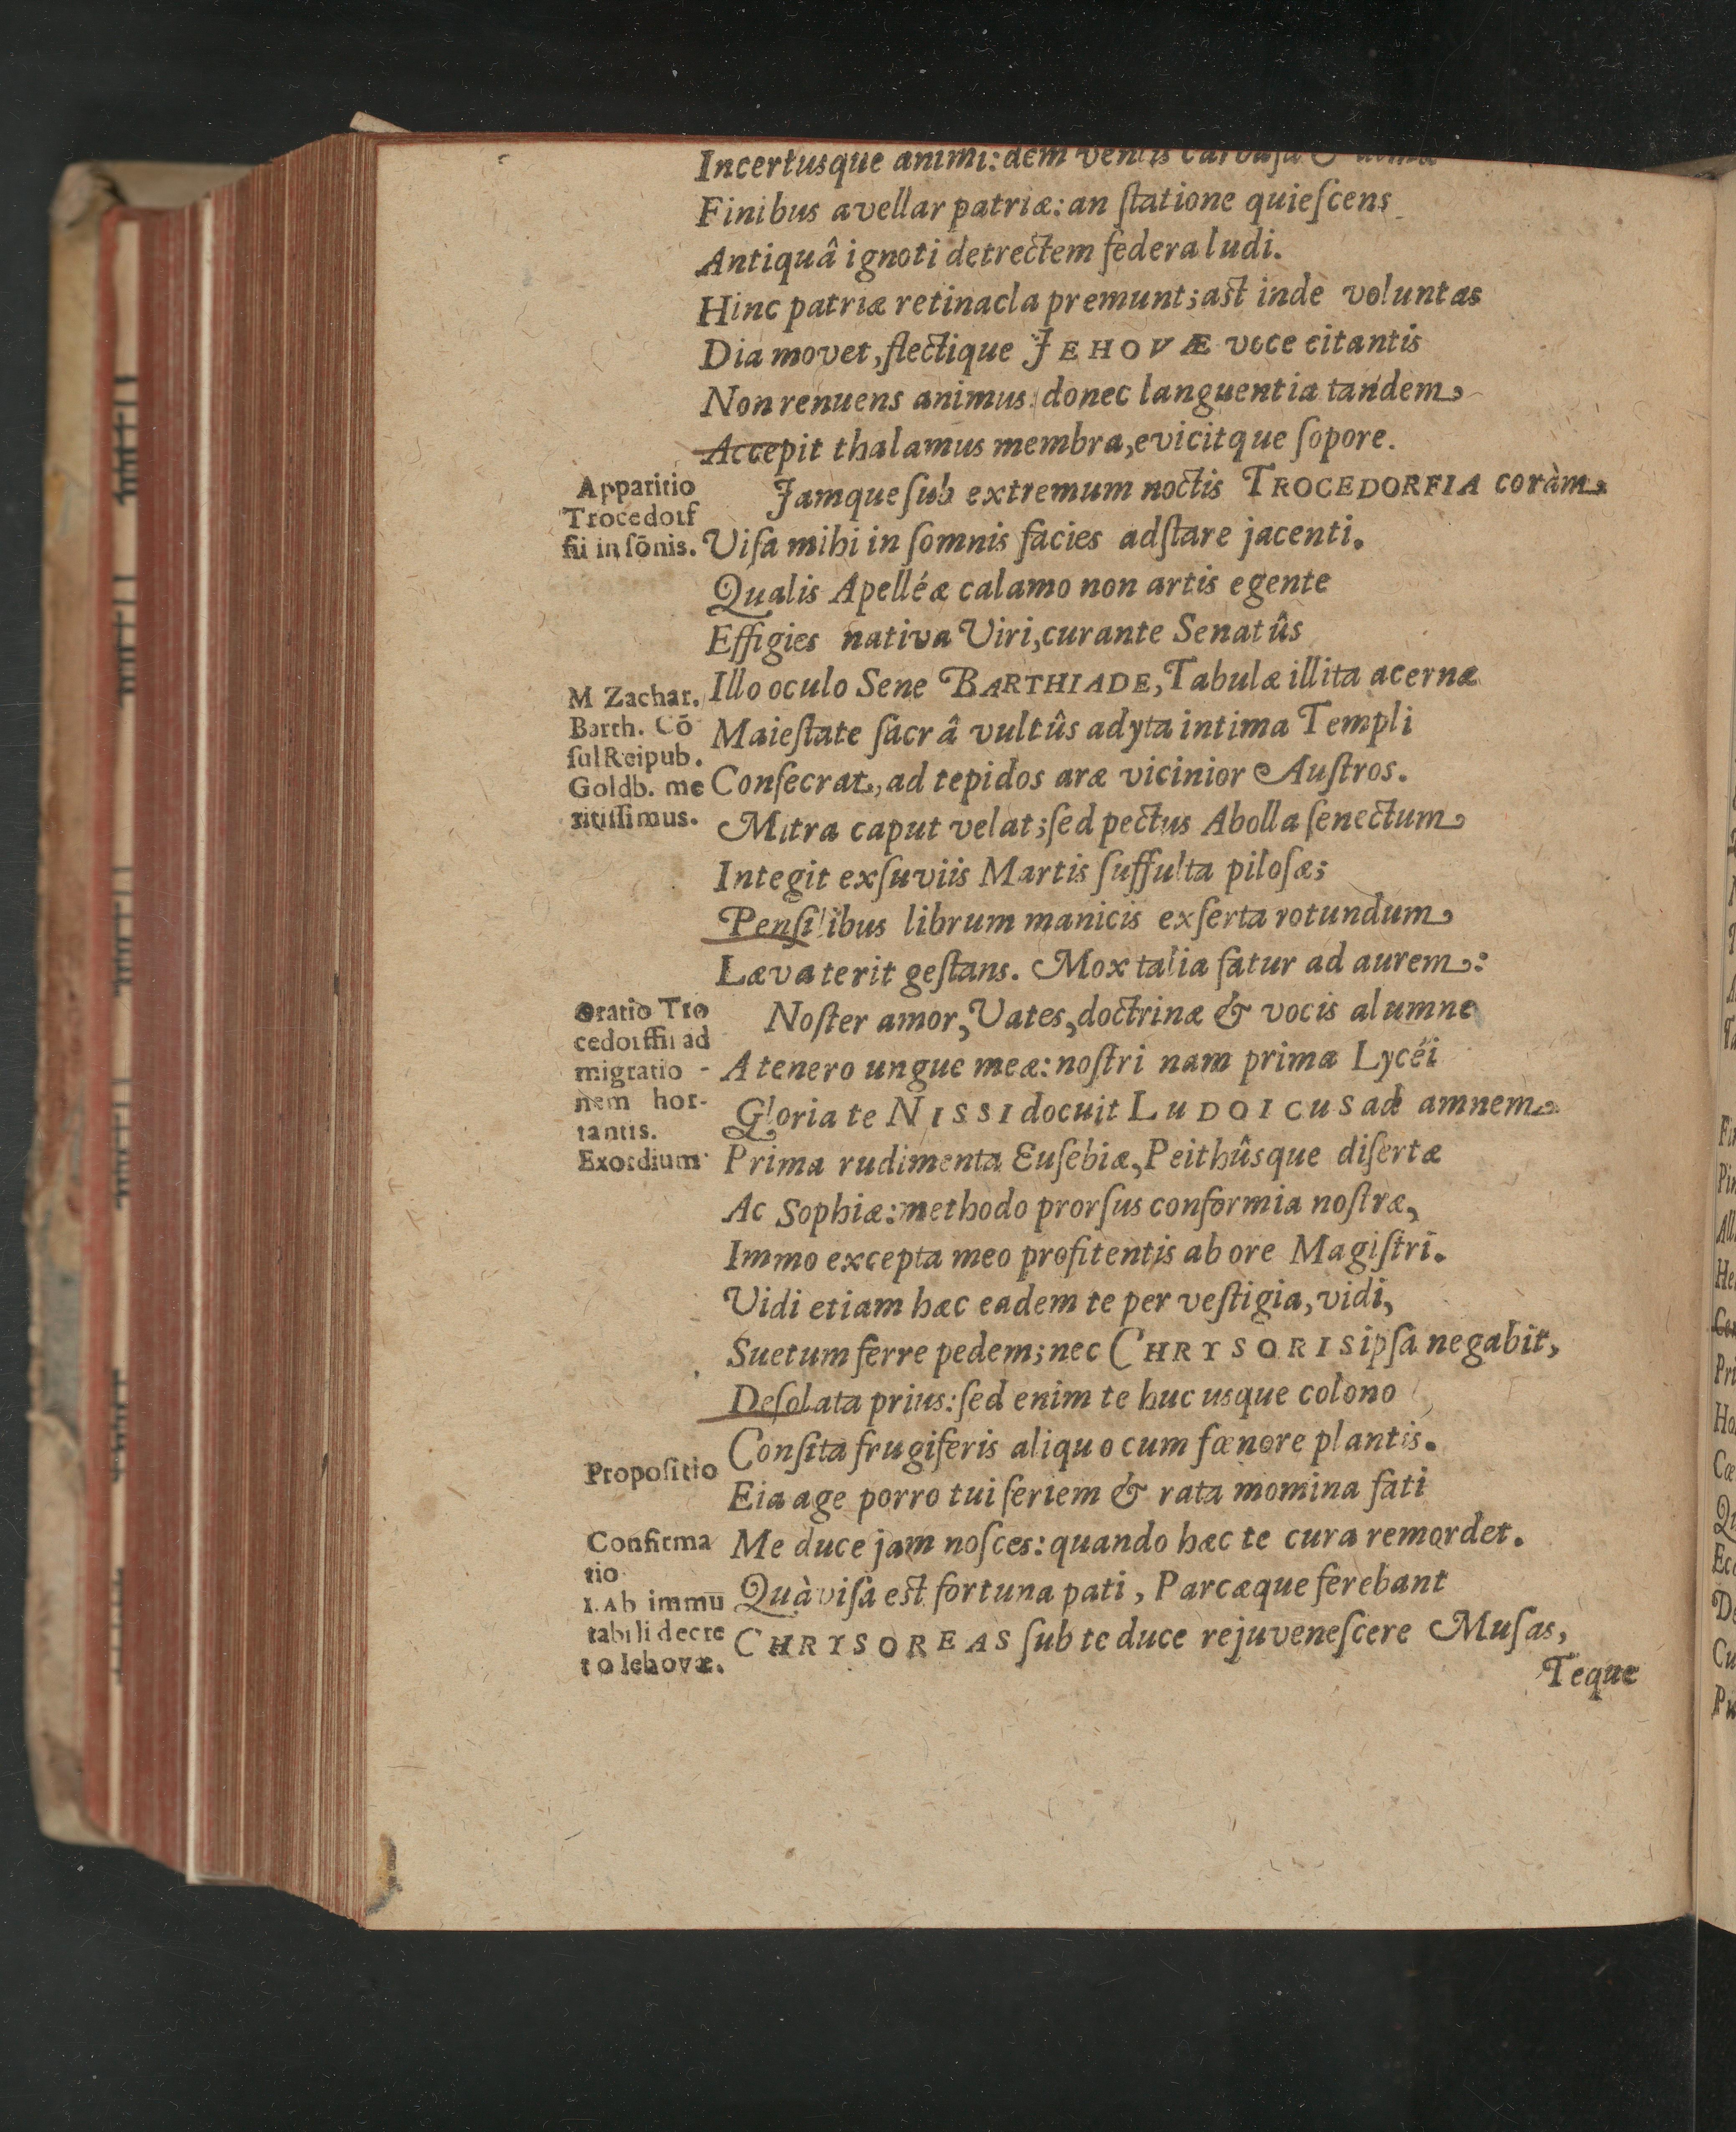 Incertusque animi: dem ventis
Finibus avellar patriæ: an ſtatione quieſcens
Antiquâ ignoti detrectem federa ludi.
Hinc patriæ retinacla premunt; aſt inde voluntas
Dia movet, flectique JEHOVÆ voce citantis
Non renuens animus: donec languentia tandem
Accepit thalamus membra, evicitque ſopore.
Apparitio
Trocedorf
fii in ſōnis.
Jamque ſub extremum noctis TROCEDORFIA coràm
Viſa mihi in ſomnis facies adſtare jacenti.
Qualis Apelléæ calamo non artis egente
Effigies nativa Viri, curante Senatûs
M Zachar.
Barth. Cō
ſul Reipub.
Goldb. me
ritiſſimus.
Illo oculo Sene BARTHIADE, Tabulæ illita acernæ
Maieſtate ſacrâ vultûs adyta intima Templi
Conſecrat, ad tepidos aræ vicinior Auſtros.
Mitra caput velat; ſed pectus Abolla ſenectum
Integit exſuviis Martis ſuffulta piloſæ;
Penſilibus librum manicis exſerta rotundum
Læva terit geſtans. Mox talia fatur ad aurem:
Oratio Tro
cedorffii ad
migratio -
nem hor-
tantis.
Exordium
Noſter amor, Vates, doctrinæ & vocis alumne
A tenero ungue meæ: noſtri nam prima Lycéi
Gloria te NISSI docuit LUDOICUS ad amnem
Prima rudimenta Euſebiæ, Peithûsque diſertæ
Ac Sophiæ: methodo prorſus conformia noſtræ,
Immo excepta meo profitentis ab ore Magiſtri.
Vidi etiam hæc eadem te per veſtigia, vidi,
Suetum ferre pedem; nec CHRYSORIS ipſa negabit,
Deſolata prius: ſed enim te huc usque colono
Conſita frugiferis aliquo cum fœnore plantis.
Propoſitio
Eia age porro tui ſeriem & rata momina fati
Me duce jam noſces: quando hæc te cura remordet.
Confirma
tio
I. Ab immū
tabili decre
to Iehovæ.
Quà viſa eſt fortuna pati, Parcæque ferebant
CHRYSOREAS ſub te duce rejuveneſcere Muſas,
Teque